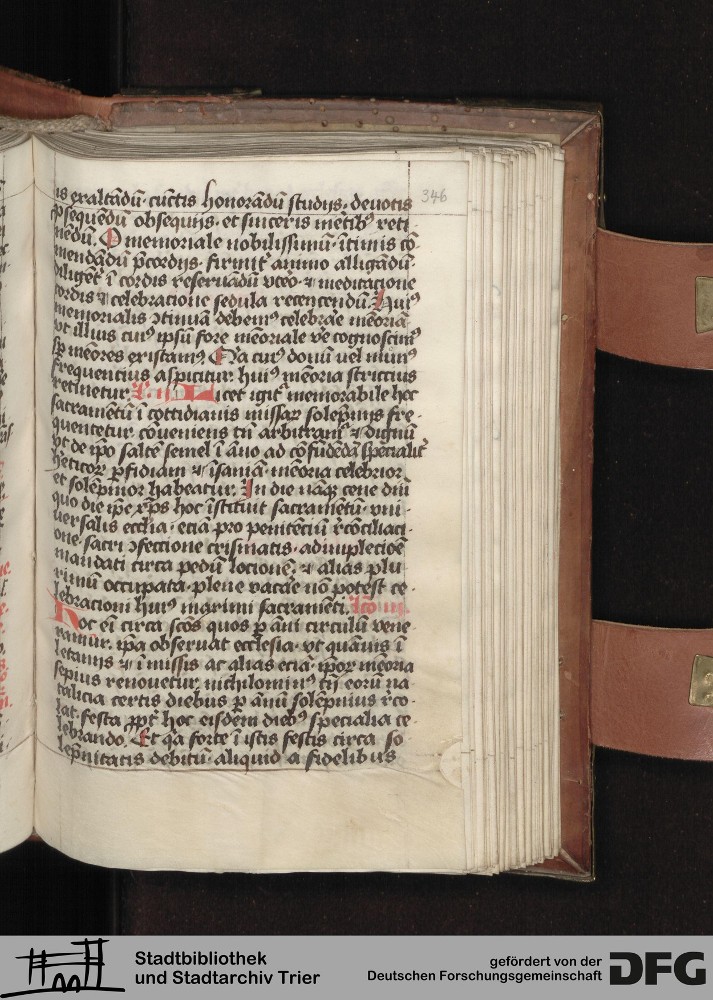 is exaltādū· cūctis honorādū studijs· deuotis
ꝓsequēdū obsequijs· et sinceris mētibꝰ reti
nēdū. O memoriale nobilissimū· ītimis cō-
mendādū p̄cordijs· firmit̄ animo alligādū·
diligēt̄ ī cordis reseruādū vt̄o· ⁊ meditacione
cordis ⁊ celebracione sedula recencendū. Huiꝰ
memorialis ↄtinuā debemꝰ celebrāe mēoriā
vt illius cuiꝰ ipsū fore mēoriale v̄e cognoscimꝰ
sp̄ mēores existamꝰ Q̄a cuiꝰ donū uel munꝰ
frequentius aspicitur· huiꝰ mēoria strictius
retinetur. Licet igit̄ memorabile hoc
sacramētū ī cottidianis missaꝝ solēp̄nijs fre-
quentetur· cōueniens tn̄ arbitramꝰ ⁊ dignū
vt de ip̄o saltē semel ī āno ad cōfūdēdā specialit̄
h̄eticoꝝ ꝑfidiam ⁊ īsaniā· mēoria celebrior
et solēp̄nior habeatur. In die nāqꝫ cene dn̄i
quo die ip̄e xp̄s hoc īstituit sacramētū· vni-
uersalis ecclīa· eciā pro penitēciū r̄cōciliaci-
one· sacri ↄfectione crismatis· adimplecioē
mandati circa pedū locionē· ⁊ alias plu
rimū occupata· plene vacāe nō potest ce-
lebracioni huiꝰ maximi sacramēti. Lc̄o iii.
Hoc eī circa scōs quos ꝑ āni circulū vene
ramur· ip̄a obseruat ecclesia· vt quāuis ī
letanijs ⁊ ī missis ac alias eciā· ip̄oꝝ mēoria
sepius renouetur· nichilominꝰ tn̄ eorū na
talicia certis diebus ꝑ ānū solēp̄nius r̄co-
lat· festa ꝓpt̄ hoc eisdem diebꝰ specialia ce-
lebrando. Et q̄a forte ī istis festis circa so
lēp̄nitatis debitū· aliquid a fidelibus
346
Stadtbibliothek
und Stadtarchiv Trier
gefördert von der
Deutschen Forschungsgemeinschaft
DFG